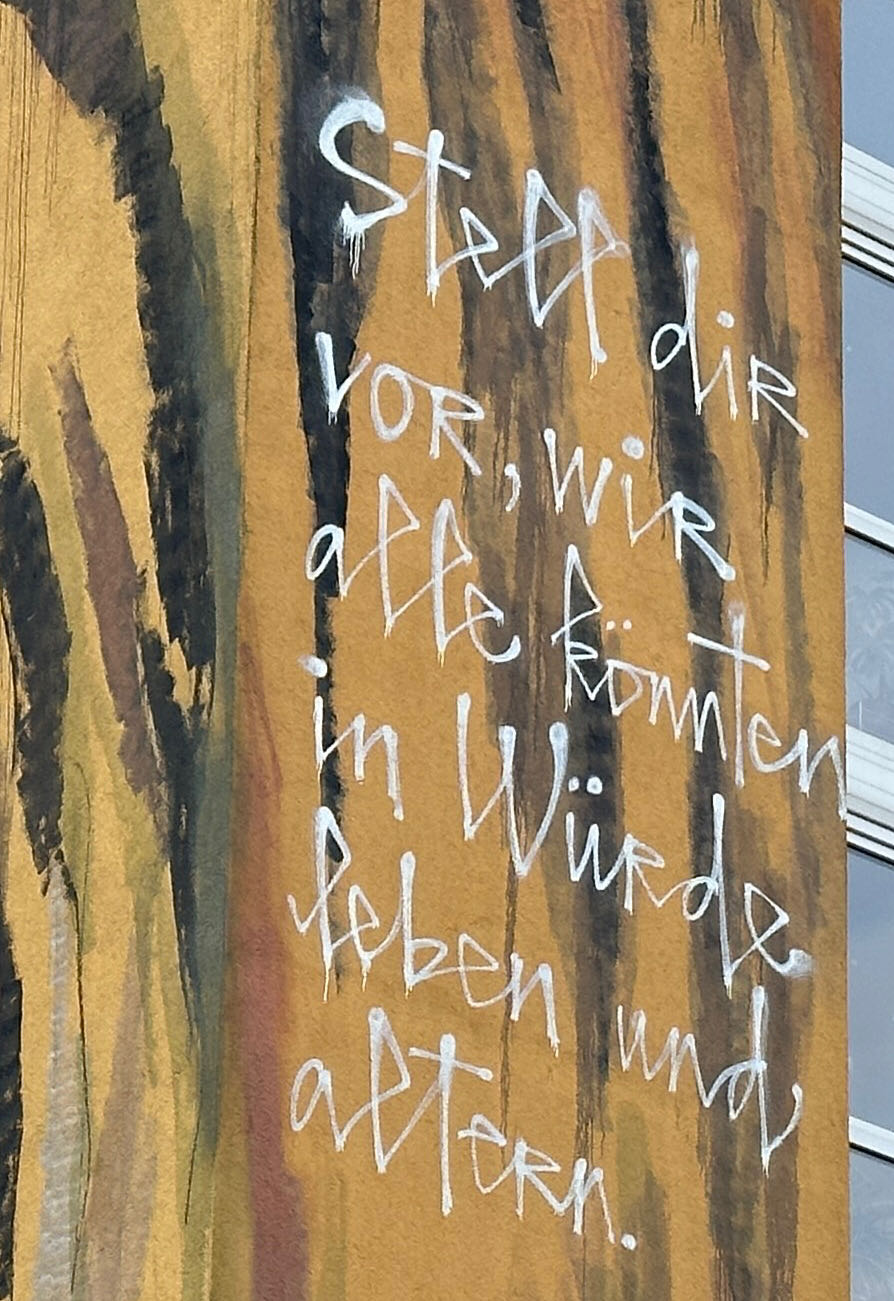 Stell dir
vor, wir
alle könnten
in Würde
leben und
altern.